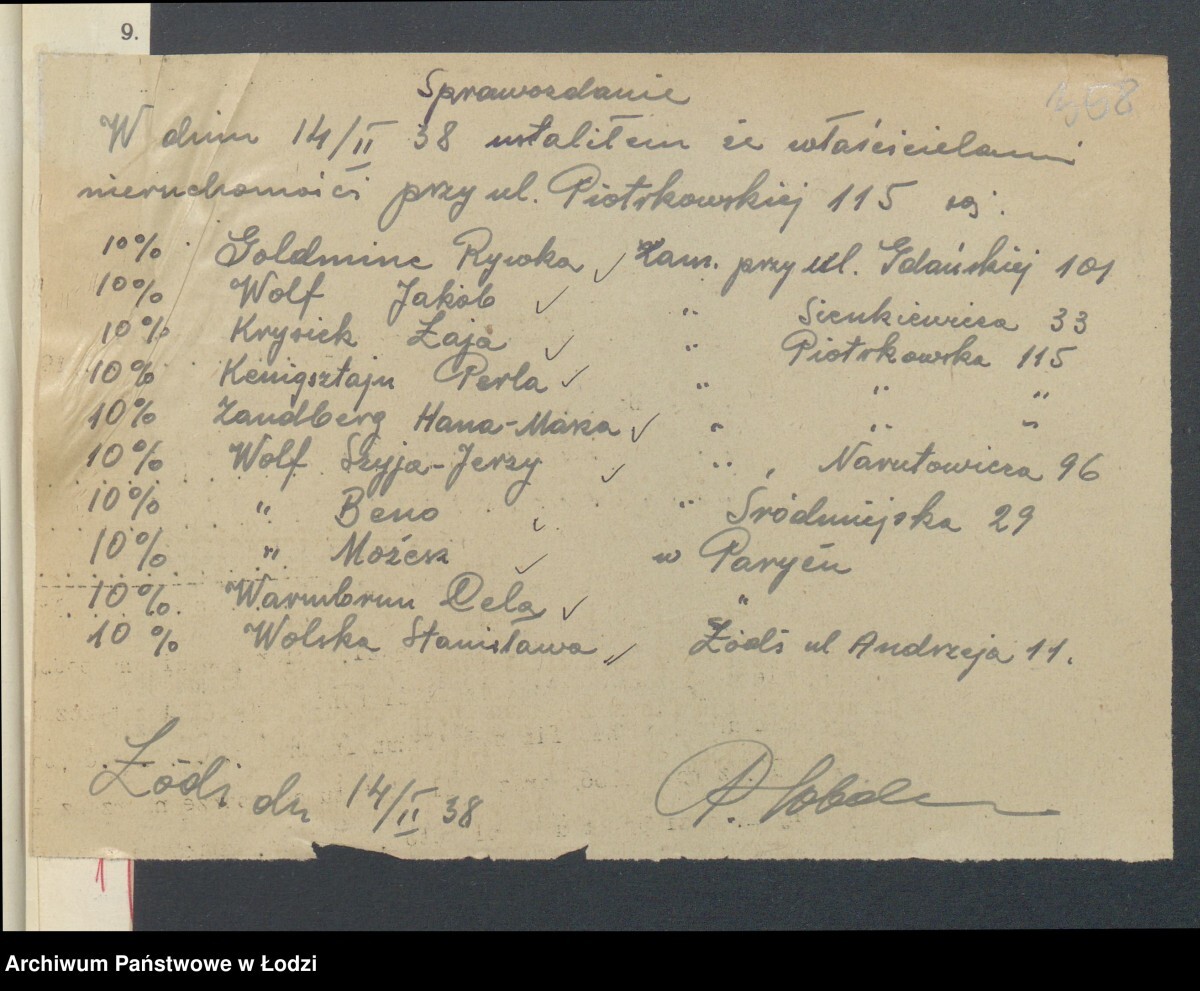 9.
Sprawozdanie
W dniu 14/II 38 ustaliłem że właścicielami
nieruchomości przy ul. Piotrkowskiej 115 są.
10% Goldminc Rywka ✓ Zam. przy ul. Gdańskiej 101
10% Wolf Jakób ✓ " Sienkiewicza 33
10% Krysiek Łaja ✓ " Piotrkowska 115
10% Kenigsztajn Perla ✓ " " "
10% Zandberg Hana-Maria ✓ " " "
10% Wolf Szyja-Jerzy ✓ " , Narutowicza 96
10% " Beno ✓ " Śródmiejska 29
10% " Możesz ✓ w Paryżu
10% Warmbrun Cela ✓ "
10% Wolska Stanisława ✓ Łódź ul Andrzeja 11.
Łódź dn 14/II 38
1
Archiwum Państwowe w Łodzi